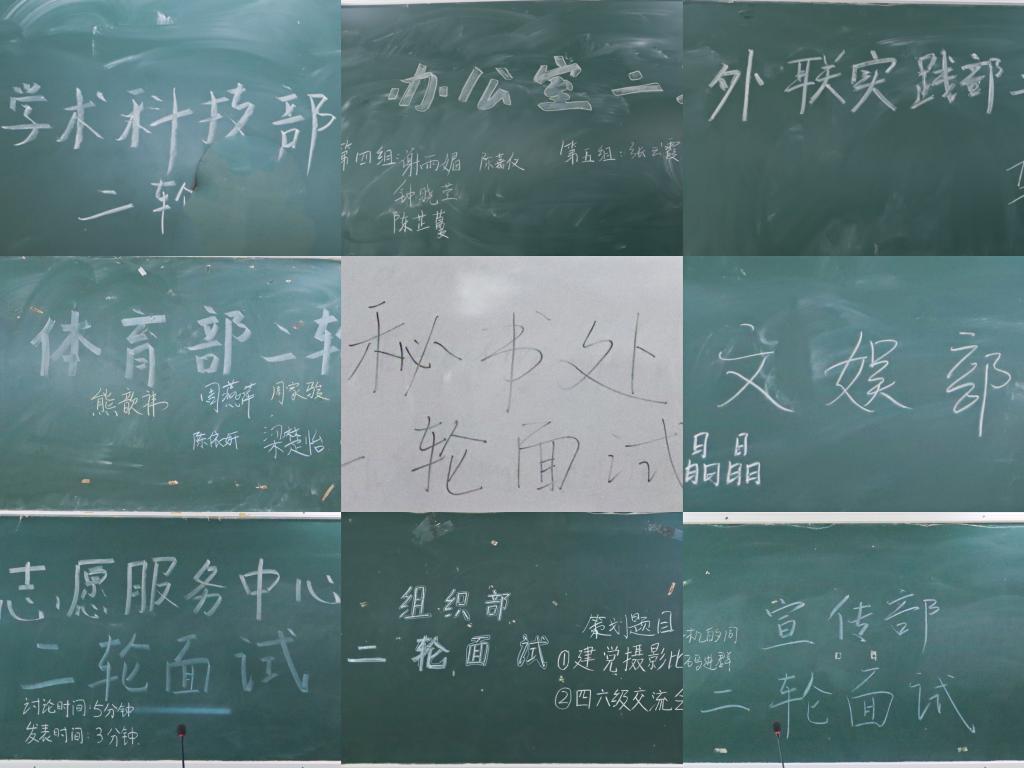 学术科技部
二轮
办公室二
第四组:谢雨媚 陈嘉仪 第五组:张云霞
钟晓芝
陈芷蔓
外联实践部二
体育部二轮
熊歆祎 周燕萍 周家骏
陈依妍 梁楚怡
秘书处
二轮面试
文娱部
晶晶
志愿服务中心
二轮面试
讨论时间:5分钟
发表时间:3分钟
组织部
二轮面试
策划题目
①建党摄影比
②四六级交流会
宣传部
二轮面试